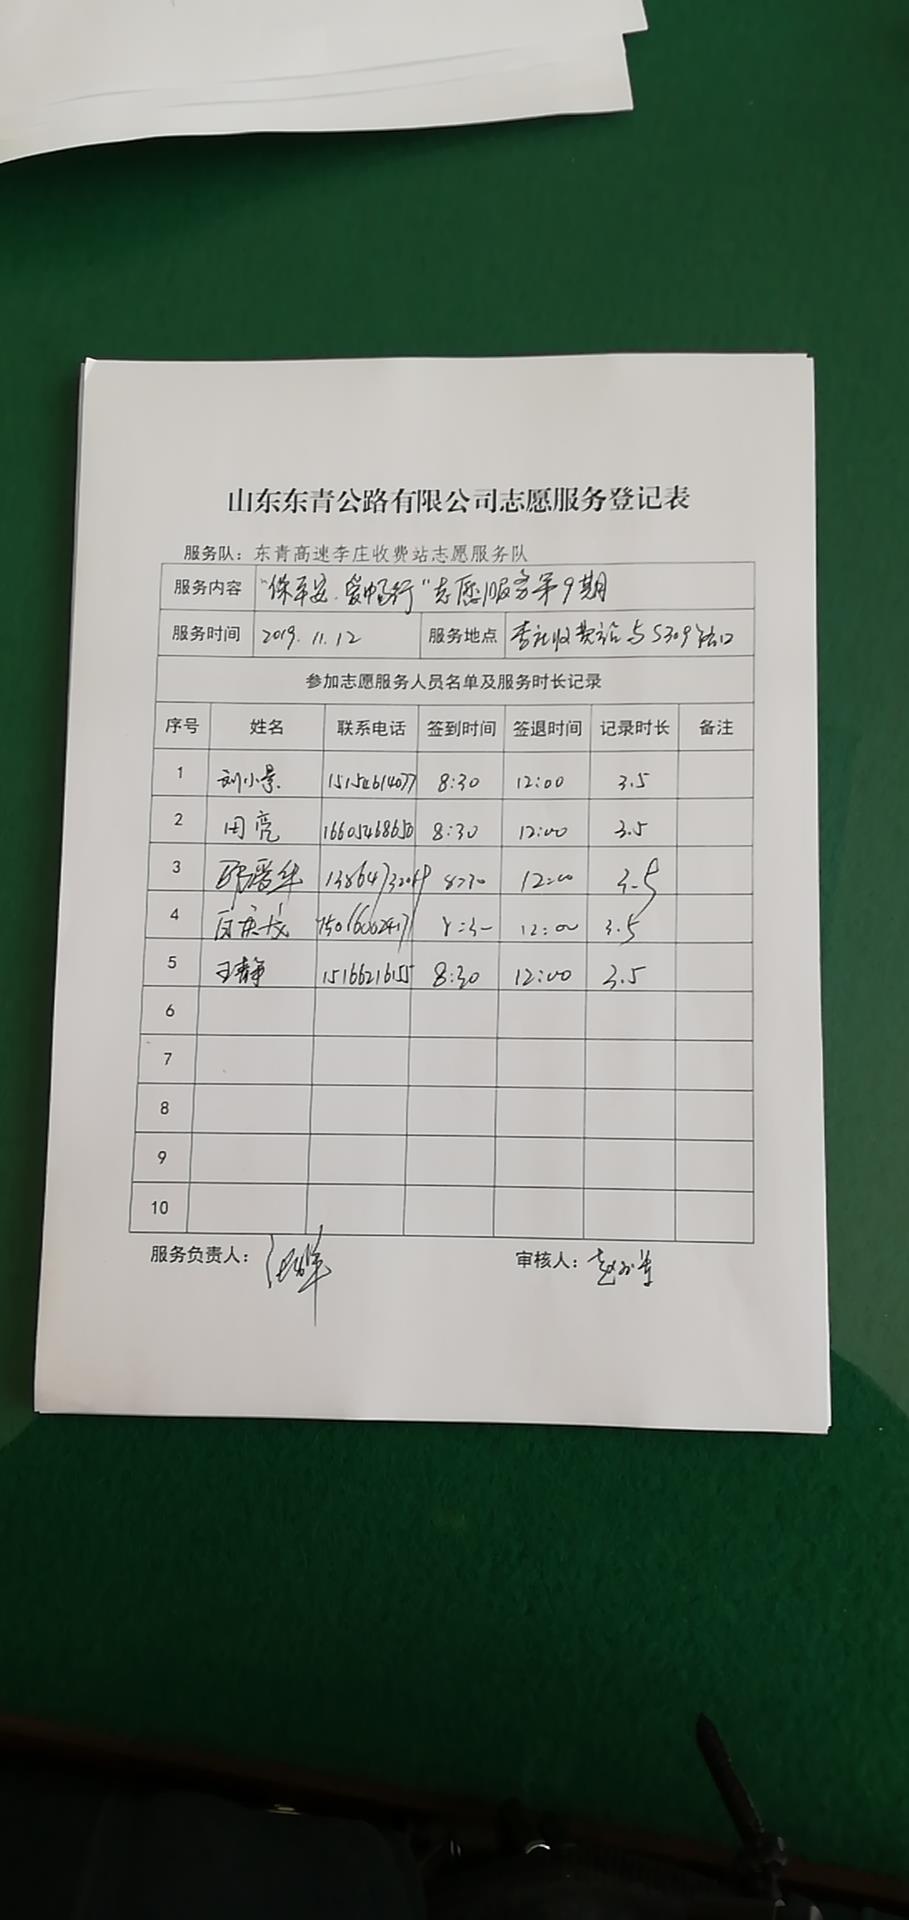 山东东青公路有限公司志愿服务登记表
服务队：东青高速李庄收费站志愿服务队
服务内容 "保平安、爱畅行"志愿服务第9期
服务时间 2019.11.12 服务地点 收费站与S309路口
参加志愿服务人员名单及服务时长记录
序号 姓名 联系电话 签到时间 签退时间 记录时长 备注
1 刘小景 15154614077 8:30 12:00 3.5
2 田亮 16605468650 8:30 12:00 3.5
3 8:30 12:00 3.5
4 8:30 12:00 3.5
5 王静 15166216155 8:30 12:00 3.5
6
7
8
9
10
服务负责人： 审核人：